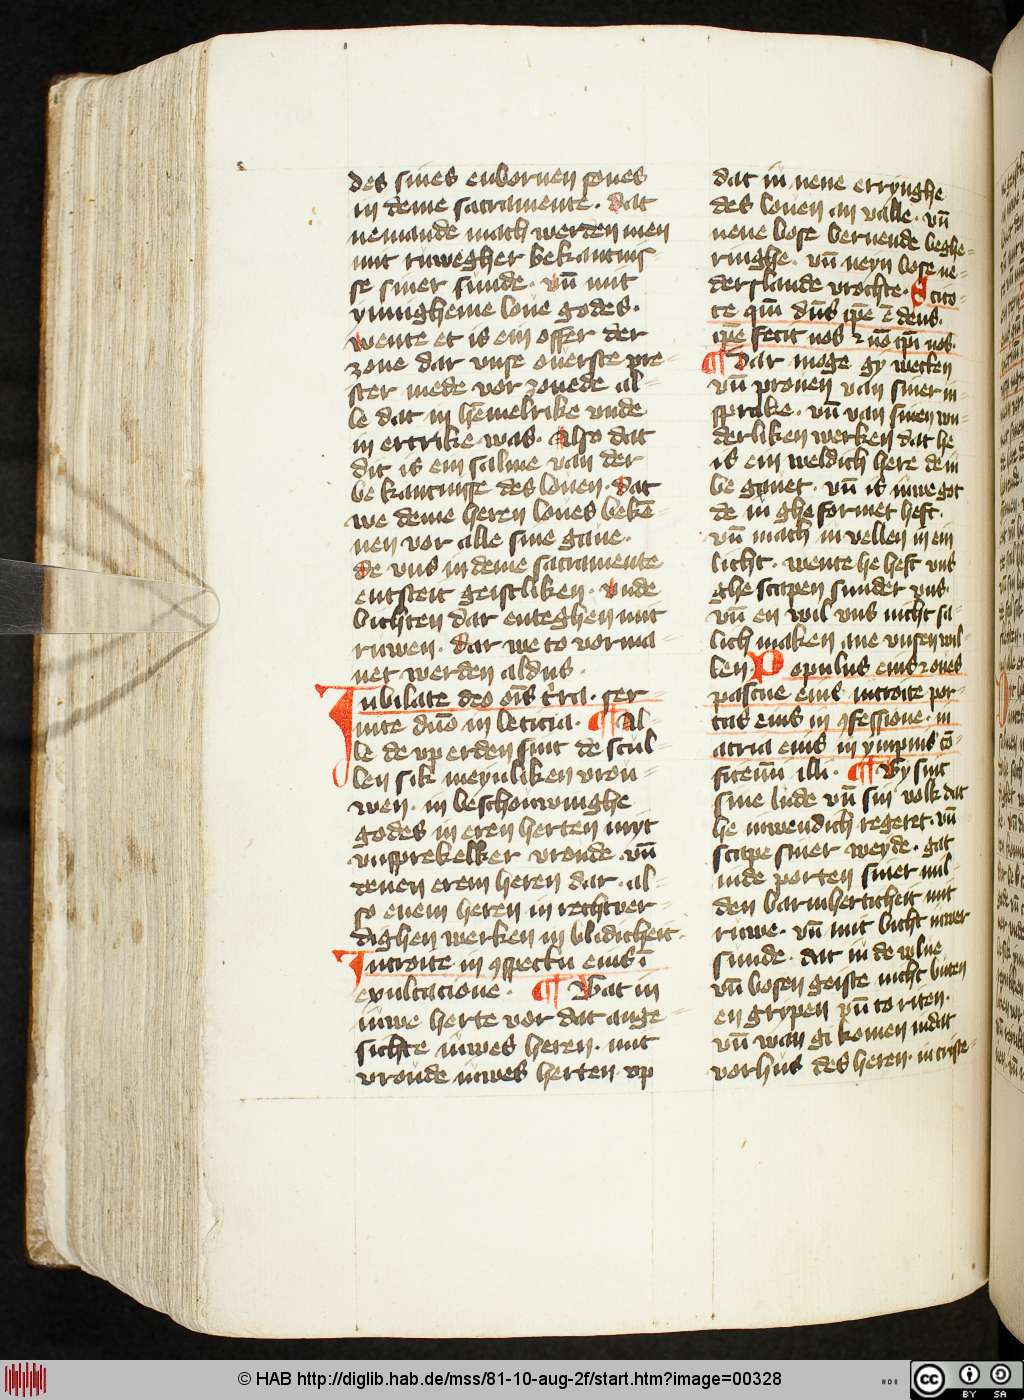 des sines enbornen sones
in deme sacramente. Dat
nemande mach werden men
mit ruwegher bekantnis=
se siner sunde. vn̄ mit
ynnigheme loue godes.
wente et is ein offer der
zone dar vnse ouerste pre=
ster mede vor zonede al=
le dat in hemelrike vnde
in ertrike was. Also dat
dit is ein salme van der
be kantnisse des louen. Dat
we deme heren loues bekē=
nen vor alle sine gaue.
de vns in deme sacramente
entsteit geistliken. vnde
bichten dar enteghen mit
ruwen. dar we to vorma=
net werden aldus.
Jubilate deo oīs t̄ra. ser=
uite dn̄o in leticia. ¶ Al=
le de vp erden sint de scul=
len sik meynliken vrou=
wen. in beschouwinghe
godes in eren herten myt
vnsprekelker vroude. vn̄
denen erem heren dar. al=
so enem heren in rechtver=
dighen werken in blidicheit.
Introite in ꝯspectu eius ī
exultacione. ¶ Gat in
iuwe herte vor dat ange=
sichte iuwes heren. mit
vroude iuwes herten. vp
dat in nene errynghe
des louen in valle. vn̄
nene bose bernende beghe=
ringhe. vn̄ neyn bose we=
derstande vrochte. Scito=
te qm̄ dn̄s ip̄e ē deus.
ip̄e fecit nos ⁊ nō ip̄i nos.
¶ Dar moge gy wecken
vn̄ prouen van siner in=
sprake. vn̄ van sinen wn=
derliken werken dat he
is ein weldich here de in
be gauet. vn̄ is iuwe got
de iu ghe formet heft.
vn̄ mach iu vellen in ein
licht. wente he heft vns
ghe scapen sunder vns.
vn̄ en wil vns nicht sa=
lich maken ane vnsen wil=
len. Populus eius ⁊ oues
pascue eius. introite por=
tas eius in ꝯfessione. in
atria eius in ympnis cō=
fitemī illi. ¶ Gy sint
sine lude vn̄ sin volk dat
he inwendich regeret. vn̄
scape siner weyde. gat
inde porten siner mil=
den barmherticheit mit
ruwe. vn̄ mit bicht iuwer
sunde. dat iu de wlue
vn̄ bosen geiste nicht buten
en grypen vn̄ to riten.
vn̄ wan gi komen in dat
vorhus des heren. in criste=
© HAB http://diglib.hab.de/mss/81-10-aug-2f/start.htm?image=00328
BY SA